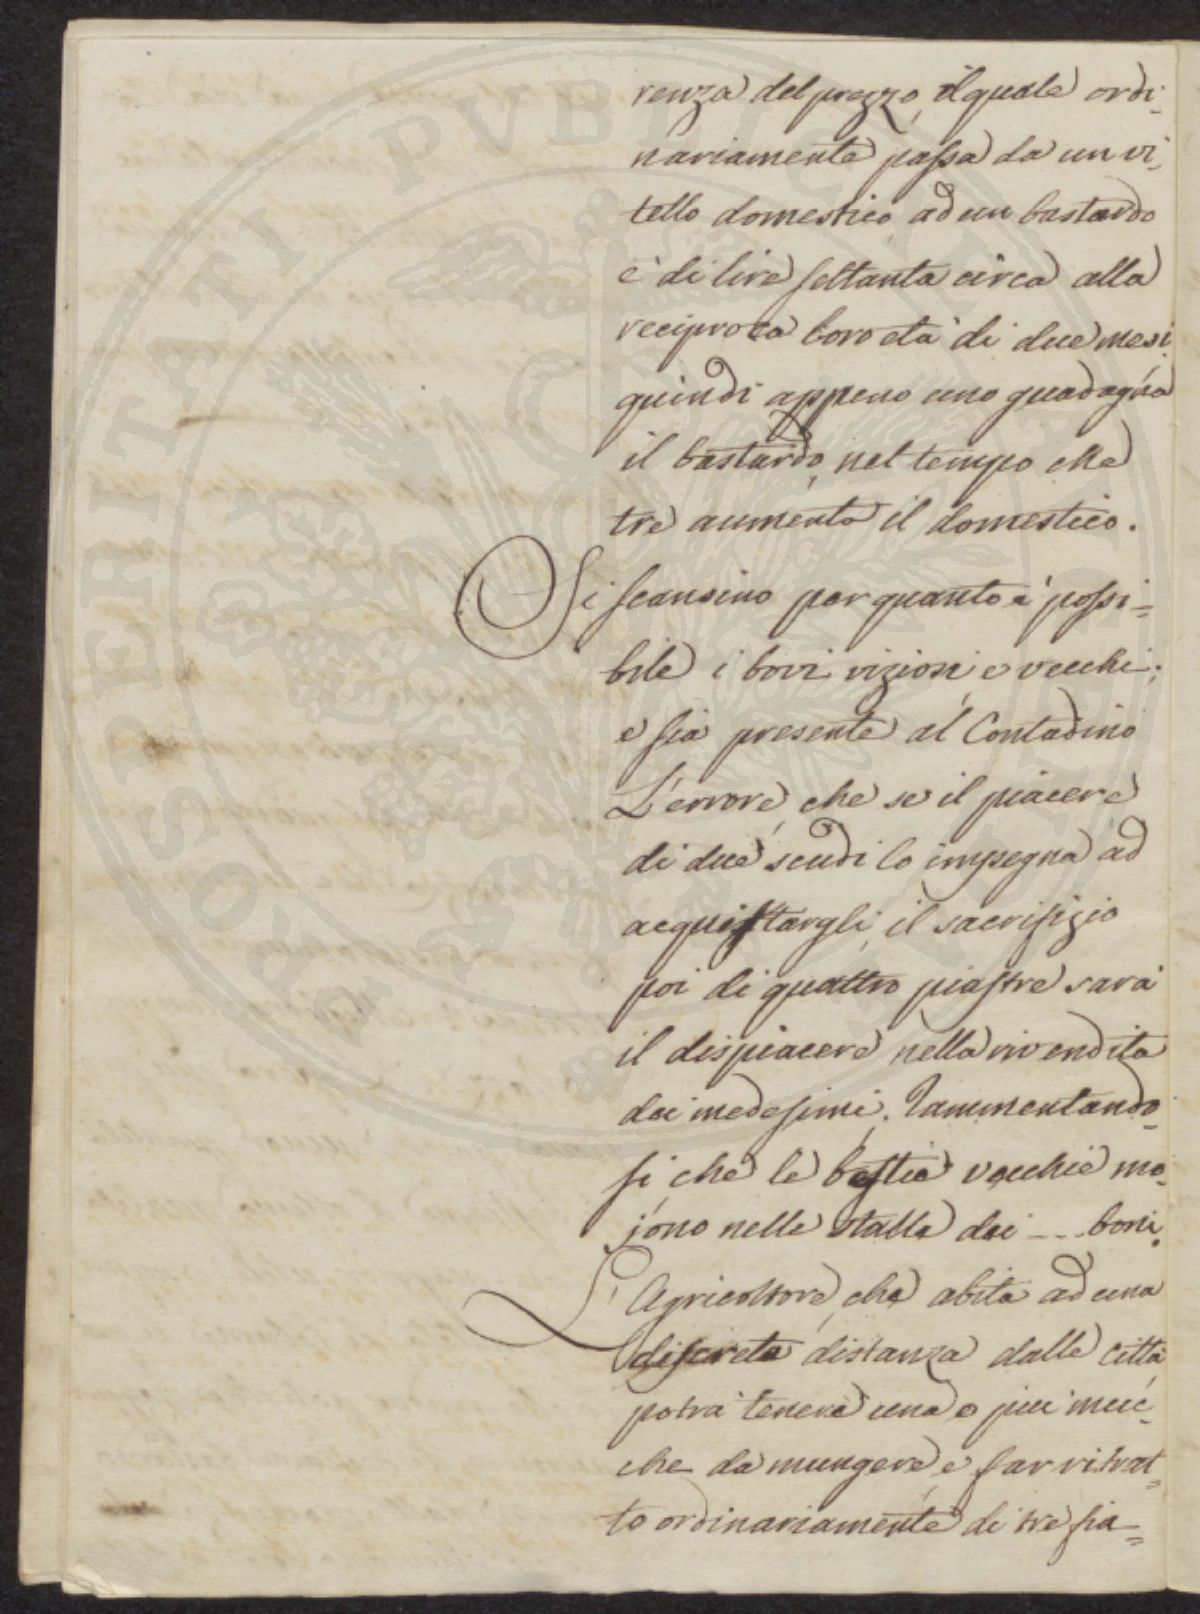 renza del prezzo, il quale ordi-
nariamente passa da un vi-
tello domestico ad un bastardo
è di lire settanta circa alla
reciproca loro età di due mesi
quindi appeno uno guadagna
il bastardo, nel tempo che
tre aumenta il domestico.
Si scansino per quanto è possi=
bile i bovi viziosi, e vecchi;
e sia presente al Contadino
L'errore, che se il piacere
di due scudi lo impegna ad
acquistargli, il sacrifizio
poi di quattro piastre sarà
il dispiacere nella rivendita
dei medesimi. Rammentando-
si, che le bestie vecchie mo-
jono nelle stalle dei --- boni.
L'Agricoltore, che abita ad una
discreta distanza dalle Città
potrà tenere una o più muc-
che da mungere, e far ritrat-
to ordinariamente di tre fia=
PROSPERITATI PVBLICAE